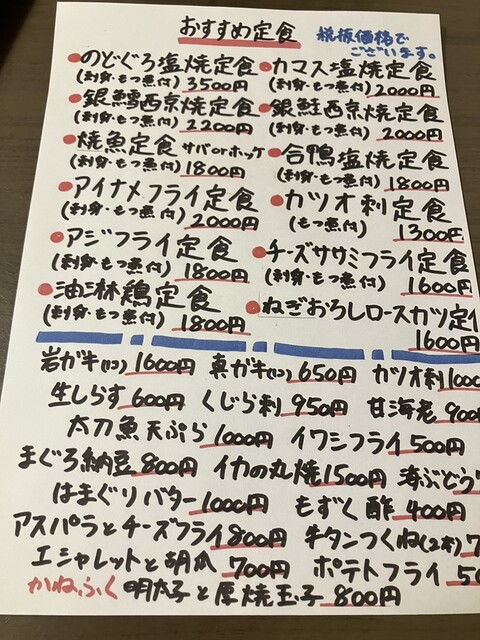 おすすめ定食
税抜価格で
ございます。
●のどぐろ塩焼定食 ●カマス塩焼定食
(刺身・もつ煮付) 3500円 (刺身・もつ煮付) 2000円
●銀鱈西京焼定食 ●銀鮭西京焼定食
(刺身・もつ煮付) 2200円 (刺身・もつ煮付) 2000円
●焼魚定食 サバorホッケ ●合鴨塩焼定食
(刺身・もつ煮付) 1800円 (刺身・もつ煮付) 1800円
●アイナメフライ定食 ●カツオ刺定食
(刺身・もつ煮付) 2000円 1300円
●アジフライ定食 ●チーズササミフライ定食
(刺身・もつ煮付) 1800円 (刺身・もつ煮付) 1600円
●油淋鶏定食 ●ねぎおろしロースカツ定
(刺身・もつ煮付) 1800円 1600円
岩ガキ(1コ) 1600円 真ガキ(1コ) 650円 カツオ刺 1000
生しらす 600円 くじら刺 950円 甘海老 900
太刀魚天ぷら 1000円 イワシフライ 500円
まぐろ納豆 800円 イカの丸焼 1500円 海ぶどう
はまぐりバター 1000円 もずく酢 400円
アスパラとチーズフライ 800円 牛タンつくね(2本) 7
エシャレットと胡瓜 700円 ポテトフライ 50
かねふく 明太子と厚焼玉子 800円